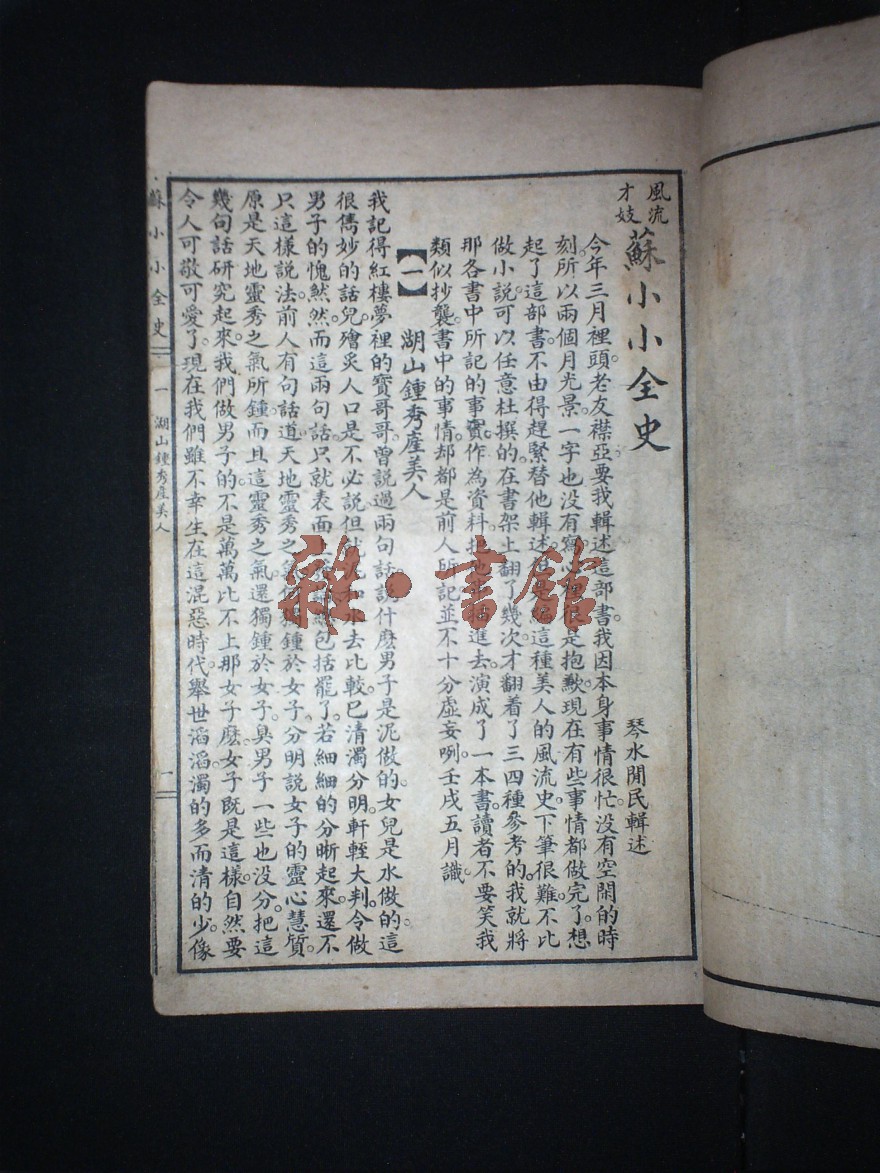 風流
才妓
蘇小小全史
琴水閒民輯述
今年三月裡頭。老友襟亞。要我輯述這部書。我因本身事情很忙。没有空閒的時
刻。所以兩個月光景。一字也没有寫。心裡很是抱歉。現在有些事情都做完了。想
起了這部書。不由得趕緊替他輯述。但是編這種美人的風流史。下筆很難。不比
做小説可以任意杜撰的。在書架上翻了幾次。才翻着了三四種參考的。我就將
那各書中所記的事實。作為資料。進去。演成了一本書。讀者不要笑我
類似抄襲。書中的事情。却都是前人所記。並不十分虛妄咧。壬戌五月識。
【一】 湖山鍾秀産美人
我記得紅樓夢裡的寶哥哥。曾説過兩句話。説什麽男子是泥做的。女兒是水做的。這
很儁妙的話兒。膾炙人口。是不必説。但就泥和水去比較。已清濁分明。軒輊大判。令做
男子的愧煞。然而這兩句話。只就表面上包括罷了。若細細的分晰起來。還不
只這樣説法。前人有句話道。天地靈秀之氣。獨鍾於女子。分明説女子的靈心慧質。
原是天地靈秀之氣所鍾。而且這靈秀之氣。還獨鍾於女子。與男子一些也没分。把這
幾句話研究起來。我們做男子的。不是萬萬比不上那女子麽。女子既是這樣。自然要
令人可敬可愛了。現在我們雖不幸生在這混惡時代。舉世滔滔。濁的多而清的少。像
蘇小小全史
一 湖山鍾秀産美人
一
雜·書館